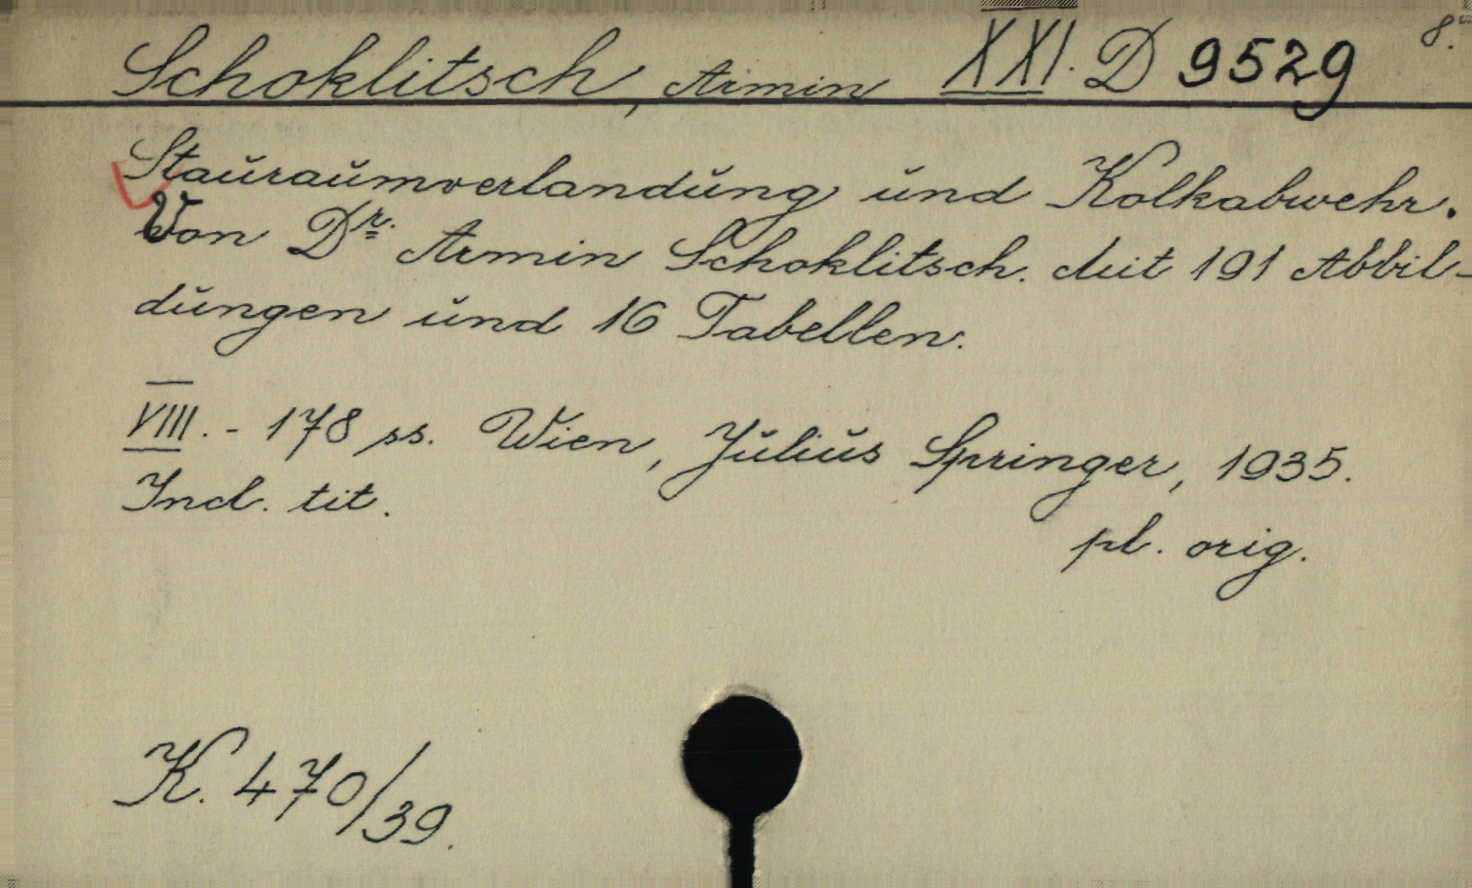 Schoklitsch, Armin XXI. D 9529 8.°
Stauraumverlandung und Kolkabwehr.
Von Dr. Armin Schoklitsch. Mit 191 Abbil-
dungen und 16 Tabellen.
VIII. - 178 ss. Wien, Julius Springer, 1935.
Incl. tit.
pl. orig.
K. 470/39.